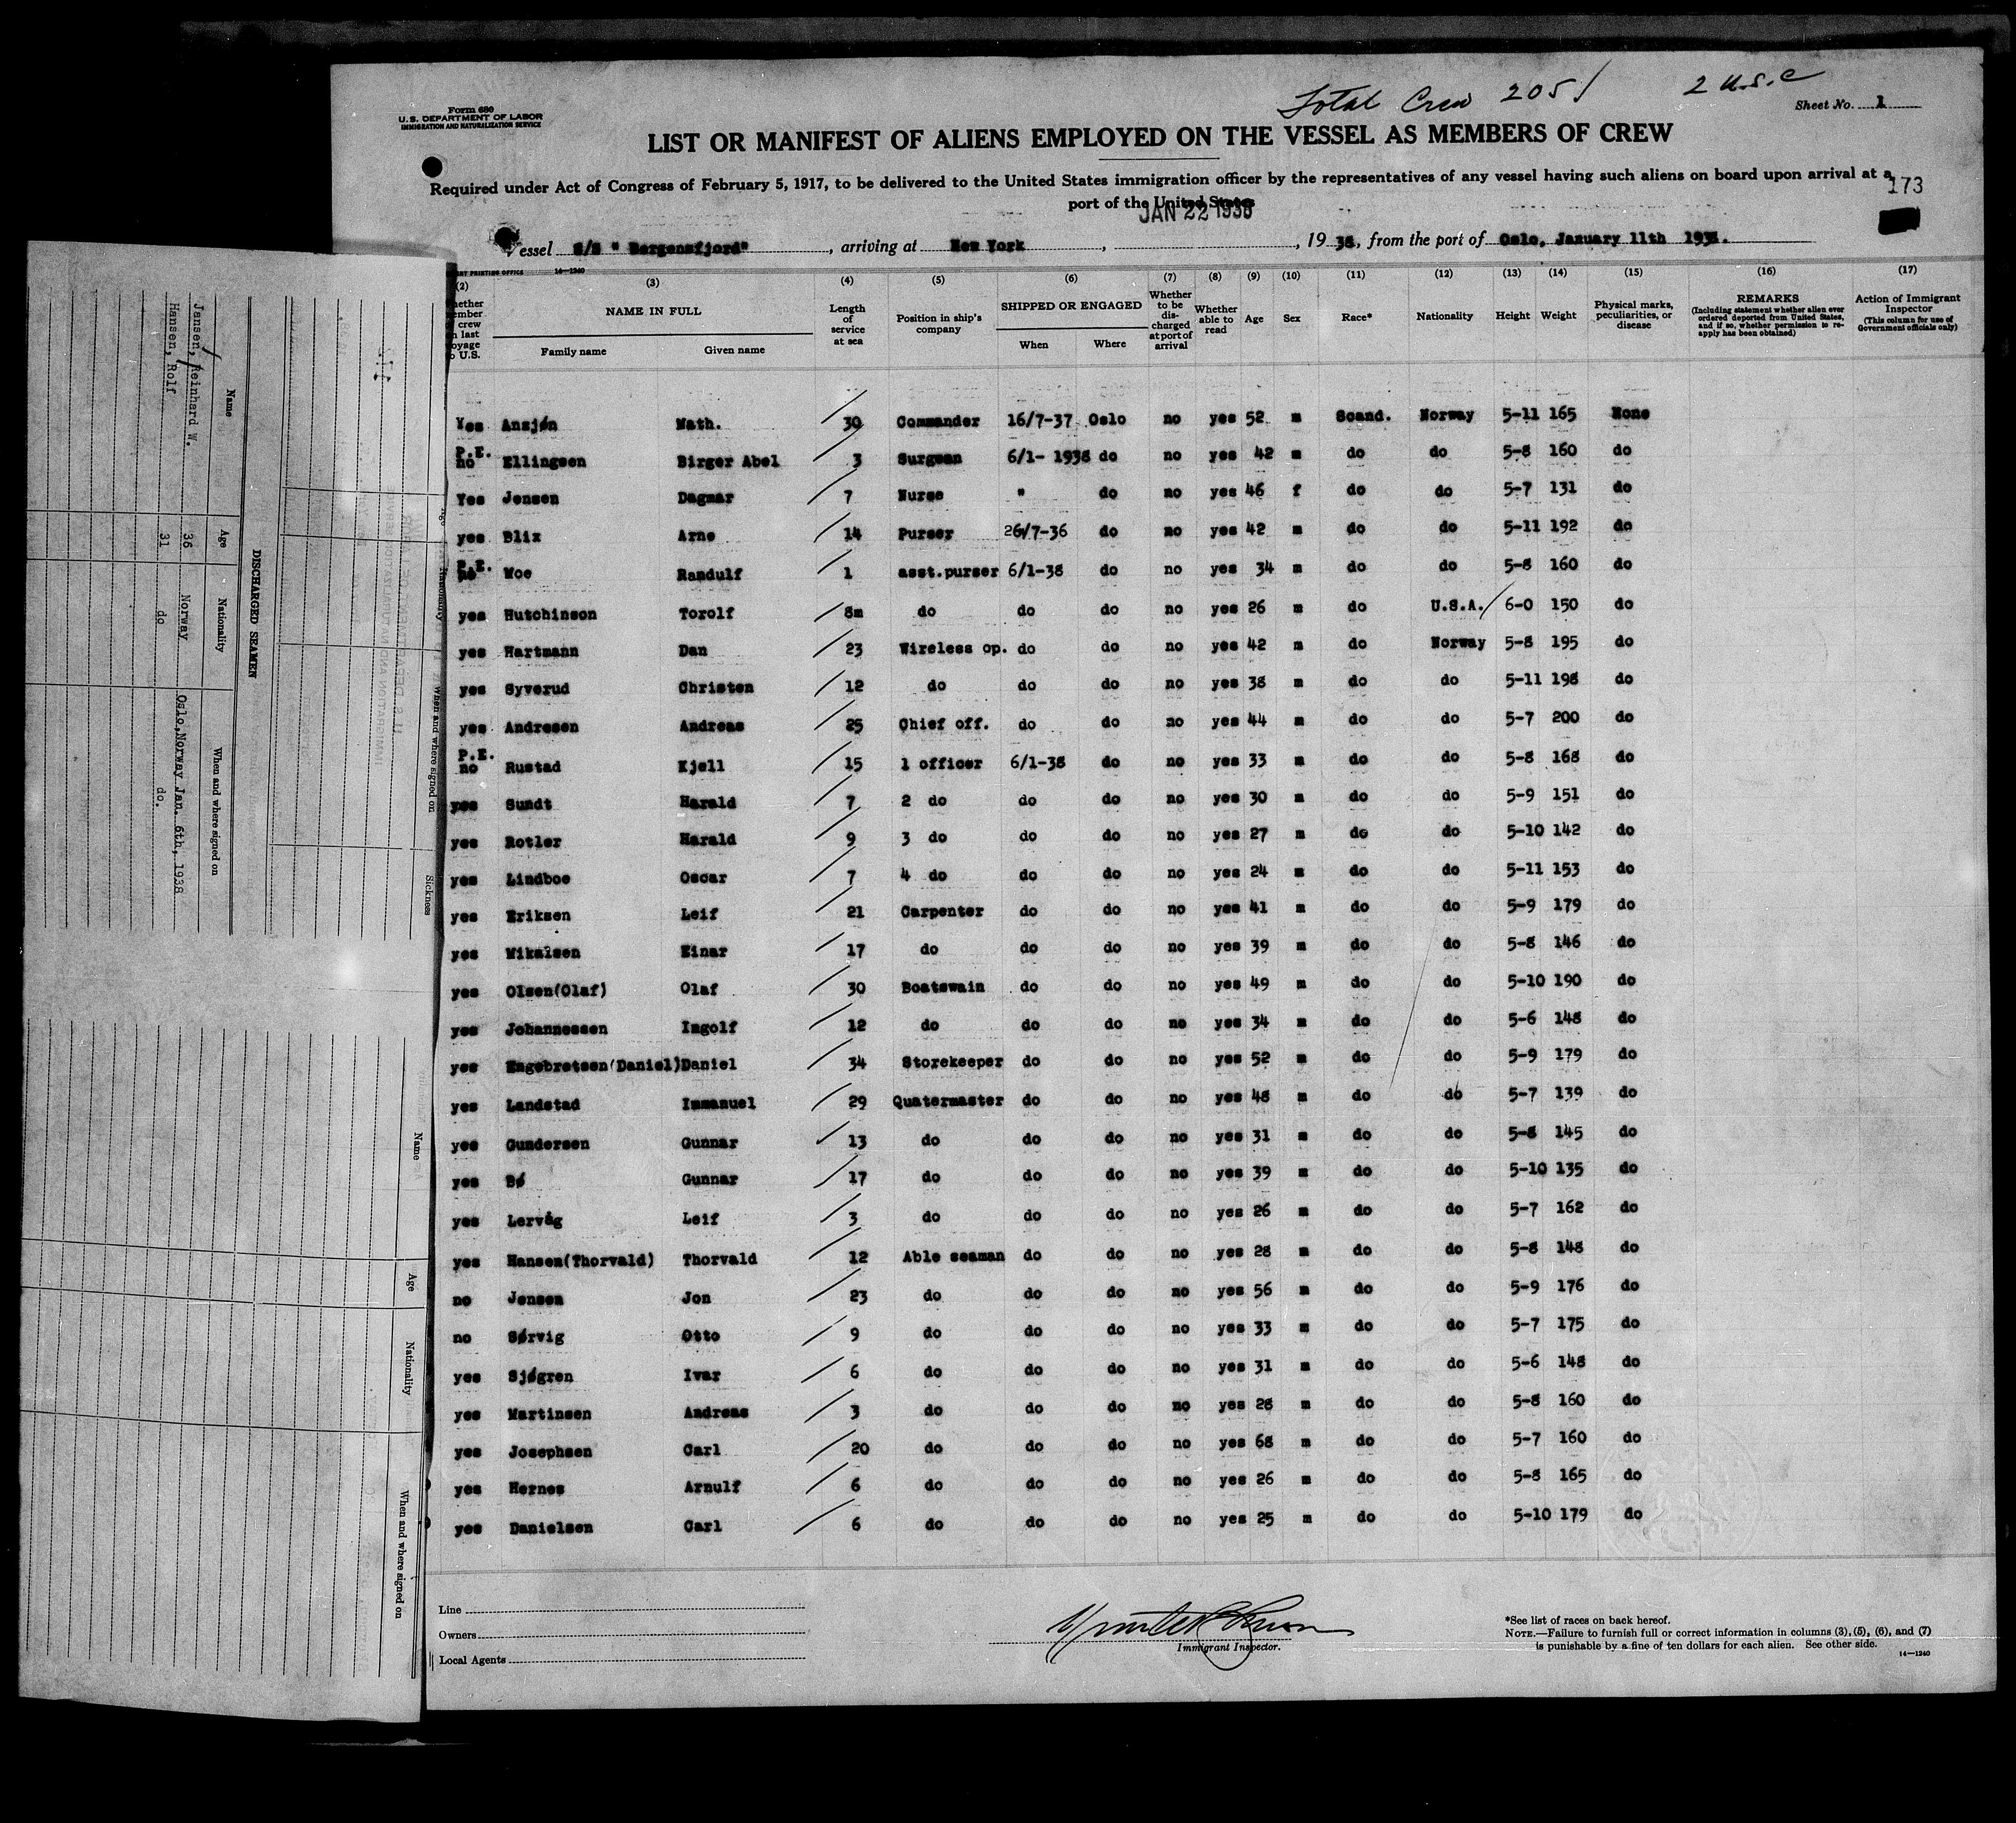 Total Crew 205
2 U.S.C
Form 680
U. S. DEPARTMENT OF LABOR
IMMIGRATION AND NATURALIZATION SERVICE
Sheet No. 1
LIST OR MANIFEST OF ALIENS EMPLOYED ON THE VESSEL AS MEMBERS OF CREW
Required under Act of Congress of February 5, 1917, to be delivered to the United States immigration officer by the representatives of any vessel having such aliens on board upon arrival at a
port of the United States
173
JAN 22 1938
Vessel S/S " Bergensfjord" , arriving at New York , , 19 38, from the port of Oslo, January 11th 1938.
14—1240
(2) (3) (4) (5) (6) (7) (8) (9) (10) (11) (12) (13) (14) (15) (16) (17)
NAME IN FULL
Family name Given name
Length of service at sea
Position in ship's company
SHIPPED OR ENGAGED
When Where
Whether to be discharged at port of arrival
Whether able to read
Age Sex Race* Nationality Height Weight
Physical marks, peculiarities, or disease
REMARKS
(Including statement whether alien ever ordered deported from United States, and if so, whether permission to reapply has been obtained)
Action of Immigrant Inspector
(This column for use of Government officials only)
Yes Anzjøn Math. 30 Commander 16/7-37 Oslo no yes 52 m Scand. Norway 5-11 165 None
P.E. no Ellingsen Birger Abel 3 Surgean 6/1- 1938 do no yes 42 m do do 5-8 160 do
Yes Jensen Dagmar 7 Nurse " do no yes 46 f do do 5-7 131 do
yes Blix Arne 14 Purser 26/7-36 do no yes 42 m do do 5-11 192 do
P.E. no Moe Randulf 1 asst.purser 6/1-38 do no yes 34 m do do 5-8 160 do
yes Hutchinson Torolf 8m do do do no yes 26 m do U.S.A. 6-0 150 do
yes Hartmann Dan 23 Wireless op. do do no yes 42 m do Norway 5-8 195 do
yes Syverud Christen 12 do do do no yes 38 m do do 5-11 198 do
yes Andresen Andreas 25 Chief off. do do no yes 44 m do do 5-7 200 do
P.E. no Rustad Kjell 15 1 officer 6/1-38 do no yes 33 m do do 5-8 168 do
yes Sundt Harald 7 2 do do do no yes 30 m do do 5-9 151 do
yes Rotler Harald 9 3 do do do no yes 27 m do do 5-10 142 do
yes Lindboe Oscar 7 4 do do do no yes 24 m do do 5-11 153 do
yes Eriksen Leif 21 Carpenter do do no yes 41 m do do 5-9 179 do
yes Mikalsen Einar 17 do do do no yes 39 m do do 5-8 146 do
yes Olsen(Olaf) Olaf 30 Boatswain do do no yes 49 m do do 5-10 190 do
yes Johannessen Ingolf 12 do do do no yes 34 m do do 5-6 148 do
yes Engebretsen(Daniel)Daniel 34 Storekeeper do do no yes 52 m do do 5-9 179 do
yes Landstad Immanuel 29 Quatermaster do do no yes 48 m do do 5-7 139 do
yes Gundersen Gunnar 13 do do do no yes 31 m do do 5-8 145 do
yes Bø Gunnar 17 do do do no yes 39 m do do 5-10 135 do
yes Lervåg Leif 3 do do do no yes 26 m do do 5-7 162 do
yes Hansen(Thorvald) Thorvald 12 Able seaman do do no yes 28 m do do 5-8 148 do
no Jensen Jon 23 do do do no yes 56 m do do 5-9 176 do
no Sørvig Otto 9 do do do no yes 33 m do do 5-7 175 do
yes Sjøgren Ivar 6 do do do no yes 31 m do do 5-6 148 do
yes Martinsen Andreas 3 do do do no yes 28 m do do 5-8 160 do
yes Josephsen Carl 20 do do do no yes 68 m do do 5-7 160 do
yes Hernes Arnulf 6 do do do no yes 26 m do do 5-8 165 do
yes Danielsen Carl 6 do do do no yes 25 m do do 5-10 179 do
Line
Owners
Local Agents
Immigrant Inspector.
*See list of races on back hereof.
NOTE.—Failure to furnish full or correct information in columns (3), (5), (6), and (7)
is punishable by a fine of ten dollars for each alien. See other side.
14—1240
DISCHARGED SEAMEN
Name Age Nationality When and where signed on
Jansen, Reinhard W. 36 Norway Oslo, Norway Jan. 6th, 1938
Hansen, Rolf 31 do do.
Sickness
Name Age Nationality When and where signed on